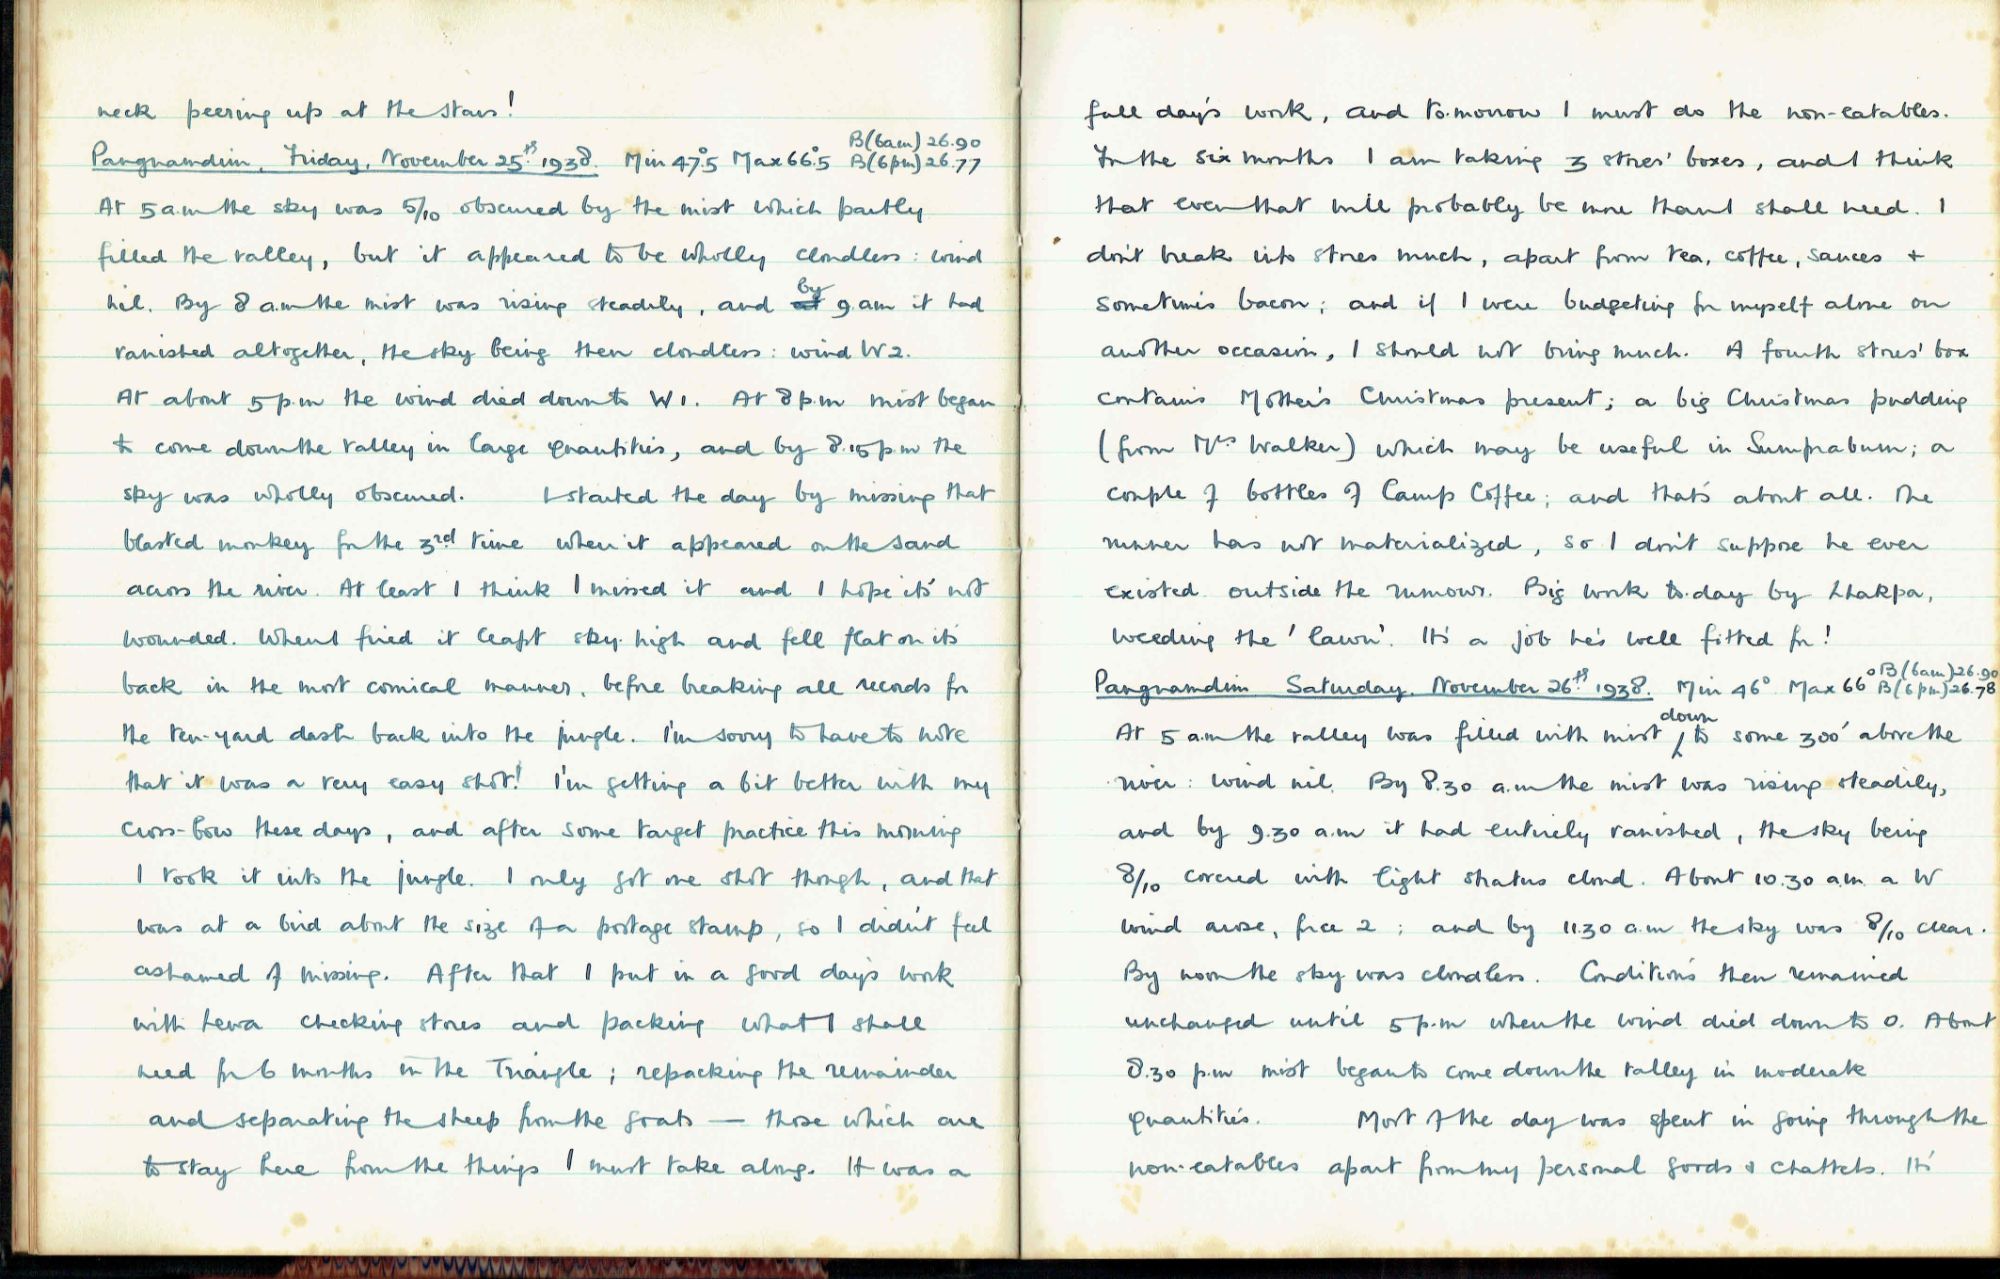 neck peering up at the stars!
Pangnamdim, Friday, November 25th 1938. Min 47°.5 Max 66°.5 B(6am) 26.90
B(6pm) 26.77
At 5 a.m the sky was 5/10 obscured by the mist which partly
filled the valley, but it appeared to be wholly cloudless: wind
nil. By 8 a.m the mist was rising steadily, and at by 9 am it had
vanished altogether, the sky being then cloudless: wind W2.
At about 5 p.m the wind died down to W1. At 8 p.m mist began
to come down the valley in large quantities, and by 8.15 p.m the
sky was wholly obscured. I started the day by missing that
blasted monkey for the 3rd time when it appeared on the sand
across the river. At least I think I missed it and I hope it's not
wounded. When I fired it leapt sky-high and fell flat on its
back in the most comical manner, before breaking all records for
the ten-yard dash back into the jungle. I'm sorry to have to note
that it was a very easy shot! I'm getting a bit better with my
cross-bow these days, and after some target practice this morning
I took it into the jungle. I only got one shot though, and that
was at a bird about the size of a postage stamp, so I didn't feel
ashamed of missing. After that I put in a good day's work
with Lewa checking stores and packing what I shall
need for 6 months in the Triangle; repacking the remainder
and separating the sheep from the goats — those which are
to stay here from the things I must take along. It was a
full day's work, and to-morrow I must do the non-eatables.
For the six months I am taking 3 stores' boxes, and I think
that even that will probably be more than I shall need. I
don't break into stores much, apart from tea, coffee, sauces +
sometimes bacon; and if I were budgeting for myself alone on
another occasion, I should not bring much. A fourth stores' box
contains Mother's Christmas present; a big Christmas pudding
(from Mrs Walker) which may be useful in Sumprabum; a
couple of bottles of Camp Coffee; and that's about all. The
runner has not materialized, so I don't suppose he ever
existed outside the rumour. Big work to-day by Lhakpa,
weeding the 'lawn'. It's a job he's well fitted for!
Pangnamdim Saturday, November 26th 1938. Min 46° Max 66° B(6am) 26.90
B(6pm) 26.78
At 5 a.m the valley was filled with mist down to some 300' above the
river: wind nil. By 8.30 a.m the mist was rising steadily,
and by 9.30 a.m it had entirely vanished, the sky being
8/10 covered with light stratus cloud. About 10.30 a.m. a W
wind arose, force 2; and by 11.30 a.m the sky was 8/10 clear.
By noon the sky was cloudless. Conditions then remained
unchanged until 5 p.m when the wind died down to 0. About
8.30 p.m mist began to come down the valley in moderate
quantities. Most of the day was spent in going through the
non-eatables apart from my personal goods & chattels. It's